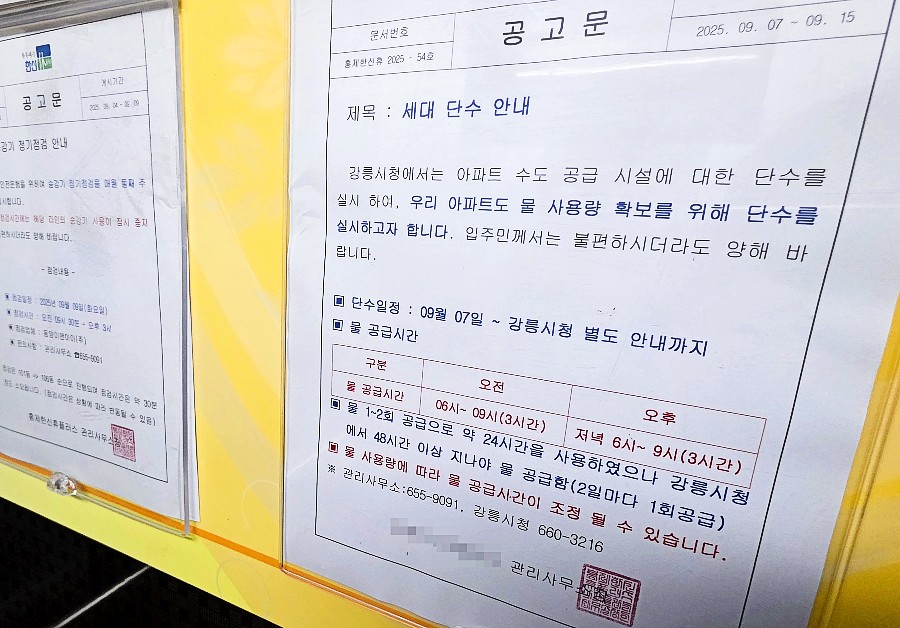 공고문
게시기간
2025. 09. 04 ~ 09. 09
승강기 정기점검 안내
안전운행을 위하여 승강기 정기점검을 매월 둘째 주
점검시간에는 해당 라인의 승강기 사용이 잠시 중지
불편하시더라도 양해 바랍니다.
- 점검내용 -
▣ 점검일정 : 2025년 09월 09일(화요일)
▣ 점검시간 : 오전 09시 30분 ~ 오후 3시
▣ 점검업체 :
▣ 문의사항 : 관리사무소 ☎655-9091
순으로 진행되며 점검시간은 약 30분
정도 소요됩니다. (점검시간은 상황에 따라 변동될 수 있음)
홍제한신휴플러스 관리사무소
문서번호
홍제한신휴 2025 - 54호
공고문
2025. 09. 07 ~ 09. 15
제목 : 세대 단수 안내
강릉시청에서는 아파트 수도 공급 시설에 대한 단수를
실시 하여, 우리 아파트도 물 사용량 확보를 위해 단수를
실시하고자 합니다. 입주민께서는 불편하시더라도 양해 바
랍니다.
▣ 단수일정 : 09월 07일 ~ 강릉시청 별도 안내까지
▣ 물 공급시간
구분 오전 오후
물 공급시간 06시~ 09시(3시간) 저녁 6시~ 9시(3시간)
▣ 물 1~2회 공급으로 약 24시간을 사용하였으나 강릉시청
에서 48시간 이상 지나야 물 공급함(2일마다 1회공급)
▣ 물 사용량에 따라 물 공급시간이 조정 될 수 있습니다.
※ 관리사무소:655-9091, 강릉시청 660-3216
관리사무소